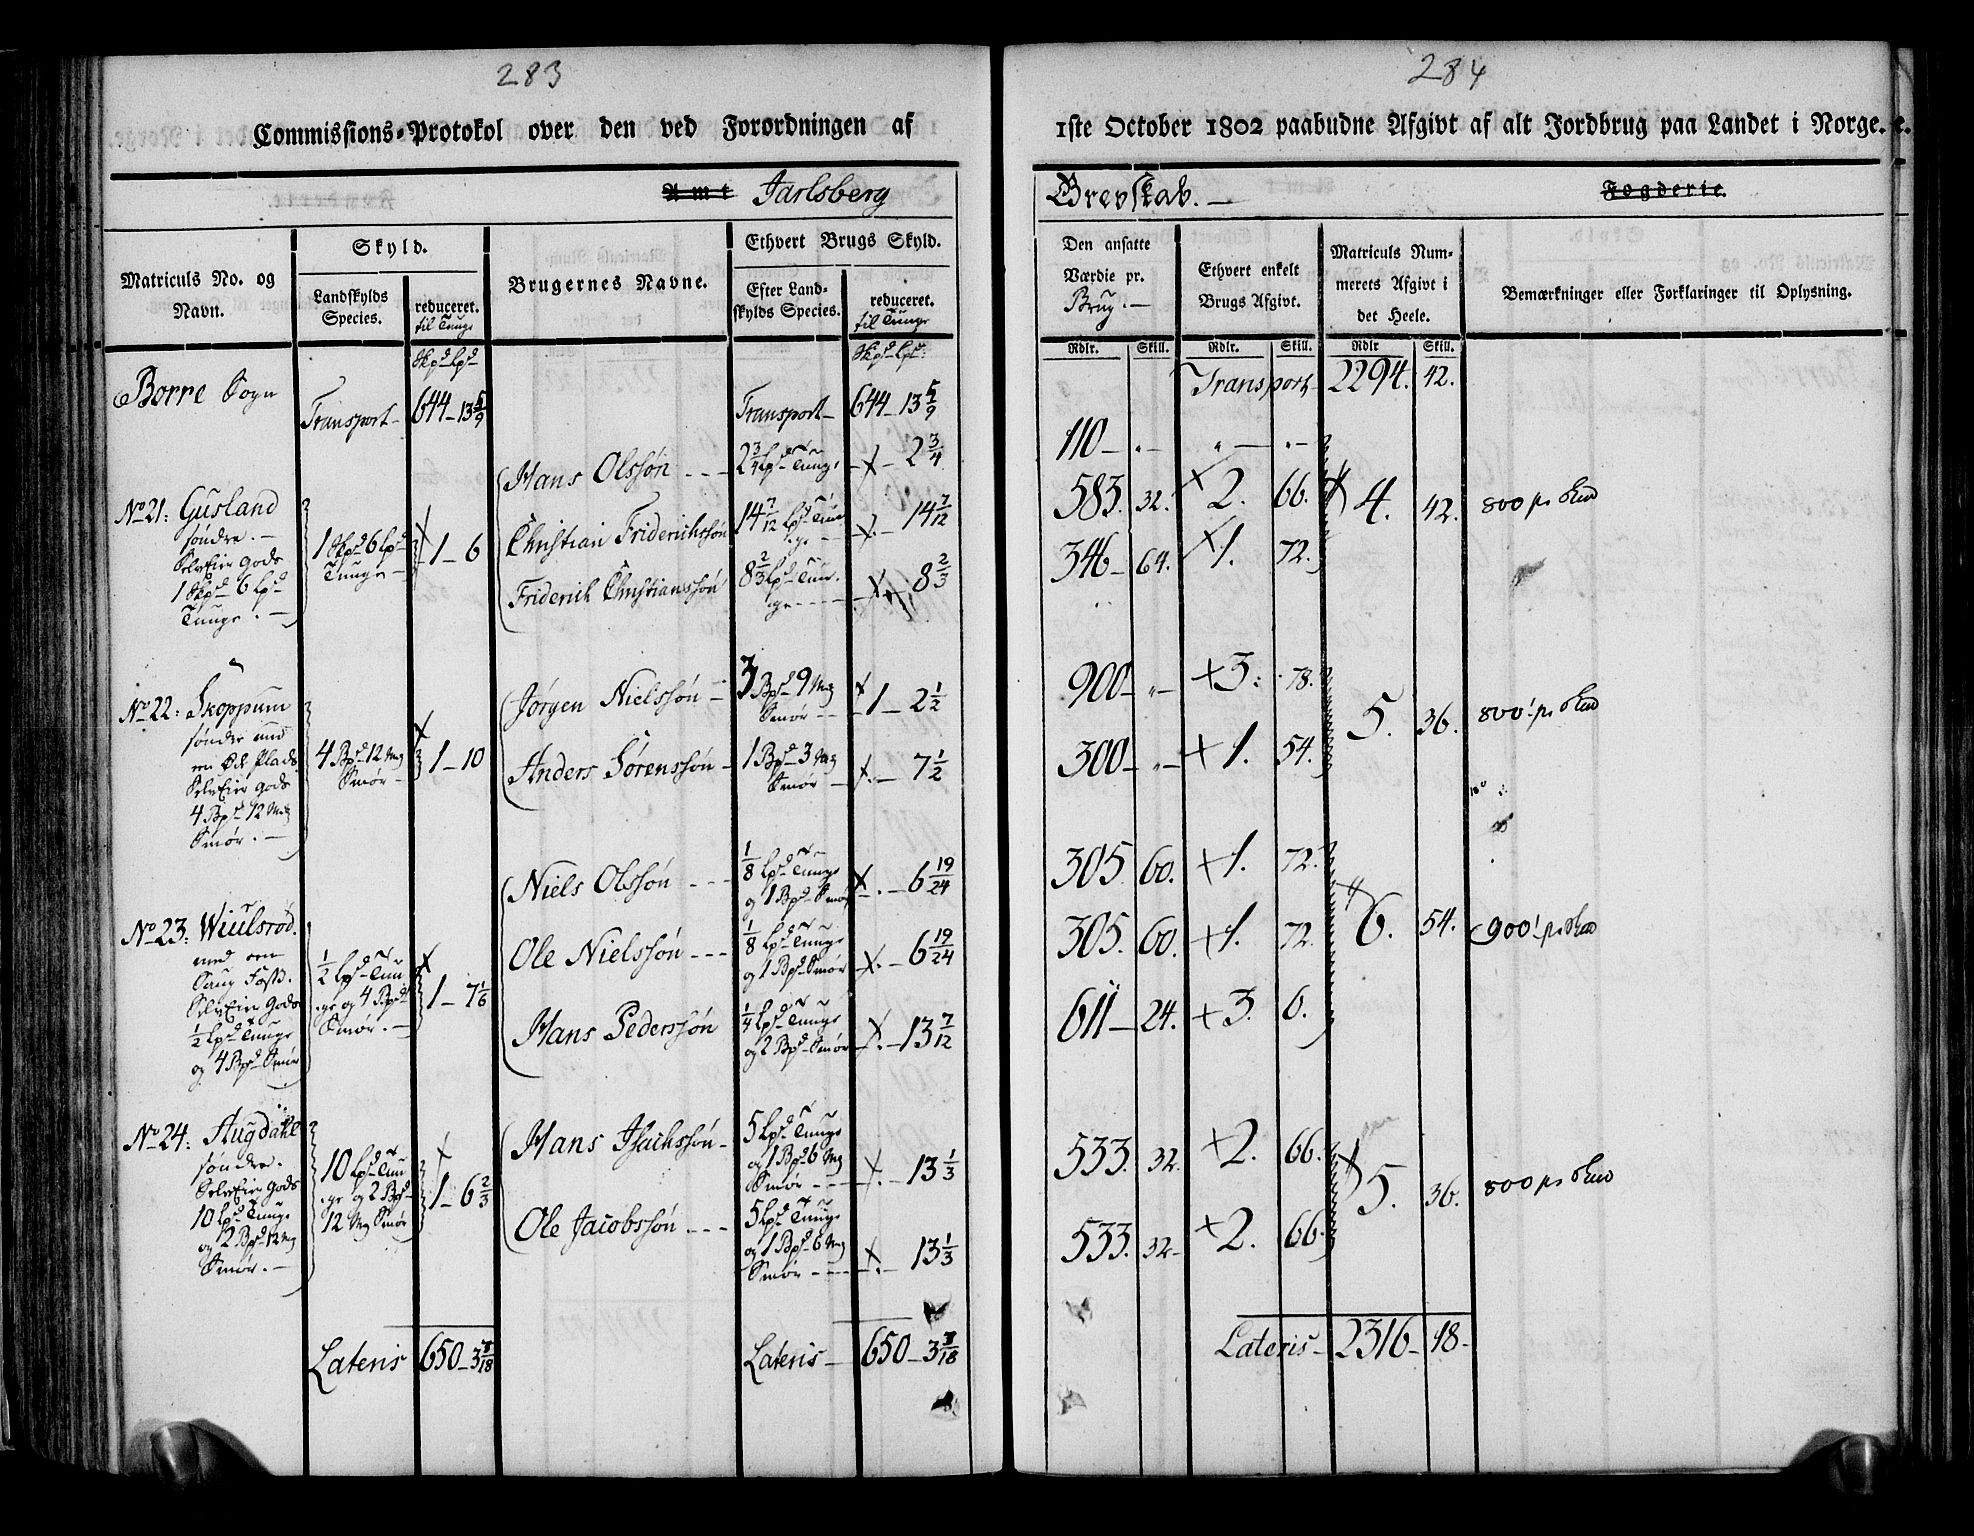 283
Commissions-Protokol over den ved Forordningen af
Amt Jarlsberg
Matriculs No. og Navn.
Skyld.
Landskylds Species.
reduceret.
til Tunge
Skpd Lpd
Brugernes Navne.
Ethvert Brugs Skyld.
Efter Landskylds Species.
reduceret.
til Tunge
Skpd Lpd
Borre Sogn
Transport 644 - 13 5/9
Transport 644 - 13 5/9
No 21: Gusland
søndre. -
SelvEier Gods
1 Skpd 6 Lpd
Tunge. -
1 Skpd 6 Lpd
Tunge -
1 - 6
Hans Olssøn - - -
2 3/4 Lpd Tunge
2 3/4
Christian Friderichssøn
14 7/12 Lpd Tun
ge -
14 7/12
Friderich Christianssøn
8 2/3 Lpd Tun
ge - - - -
8 2/3
No 22: Skoppum
søndre med
SelvEier Gods
4 Bpd 12 Mg
Smør. -
4 Bpd 12 Mg
Smør -
1 - 10
Jørgen Nielssøn -
3 Bpd 9 Mg
Smør - -
1 - 2 1/2
Anders Sørenssøn -
1 Bpd 3 Mg
Smør -
7 1/2
No 23: Wiulsrød.
med
SelvEier Gods
1/2 Lpd Tunge
og 4 Bpd Smør
1/2 Lpd Tun
ge og 4 Bpd
Smør. -
1 - 7 1/6
Niels Olssøn - - -
1/8 Lpd Tunge
og 1 Bpd Smør
6 19/24
Ole Nielssøn - - -
1/8 Lpd Tunge
og 1 Bpd Smør
6 19/24
Hans Pederssøn
1/4 Lpd Tunge
og 2 Bpd Smør
13 7/12
No 24: Augdahl
søndre.
SelvEier Gods
10 Lpd Tunge
og 2 Bpd 12 Mg
Smør. -
10 Lpd Tun
ge og 2 Bpd
12 Mg Smør
1 - 6 2/3
Hans Isachssøn -
5 Lpd Tunge
og 1 Bpd 6 Mg
Smør - - -
13 1/3
Ole Jacobssøn - - -
5 Lpd Tunge
og 1 Bpd 6 Mg
Smør - - -
13 1/3
Lateris 650 - 3
Lateris - 650 - 3
284
1ste October 1802 paabudne Afgivt af alt Jordbrug paa Landet i Norge.
Grevskab. -
Fogderie.
Den ansatte Værdie pr.
Brug. -
Ethvert enkelt Brugs Afgivt.
Matriculs Nummerets Afgivt i det Heele.
Bemærkninger eller Forklaringer til Oplysning.
Rdlr. Skill. Rdlr. Skill. Rdlr Skill.
Transport 2294. 42.
110 - " - " - " -
583. 32. 2. 66. 4. 42. 800 pr Skd
346 - 64. 1. 72.
900 - " - 3. 78.
5. 36. 800 pr Skd
300 - " - 1. 54.
305. 60. 1. 72.
305. 60. 1. 72. 6. 54. 900 pr Skd
611 - 24. 3. 6.
533. 32. 2. 66.
5. 36. 800 pr Skd
533. 32 - 2. 66.
Lateris - 2316 - 18 -